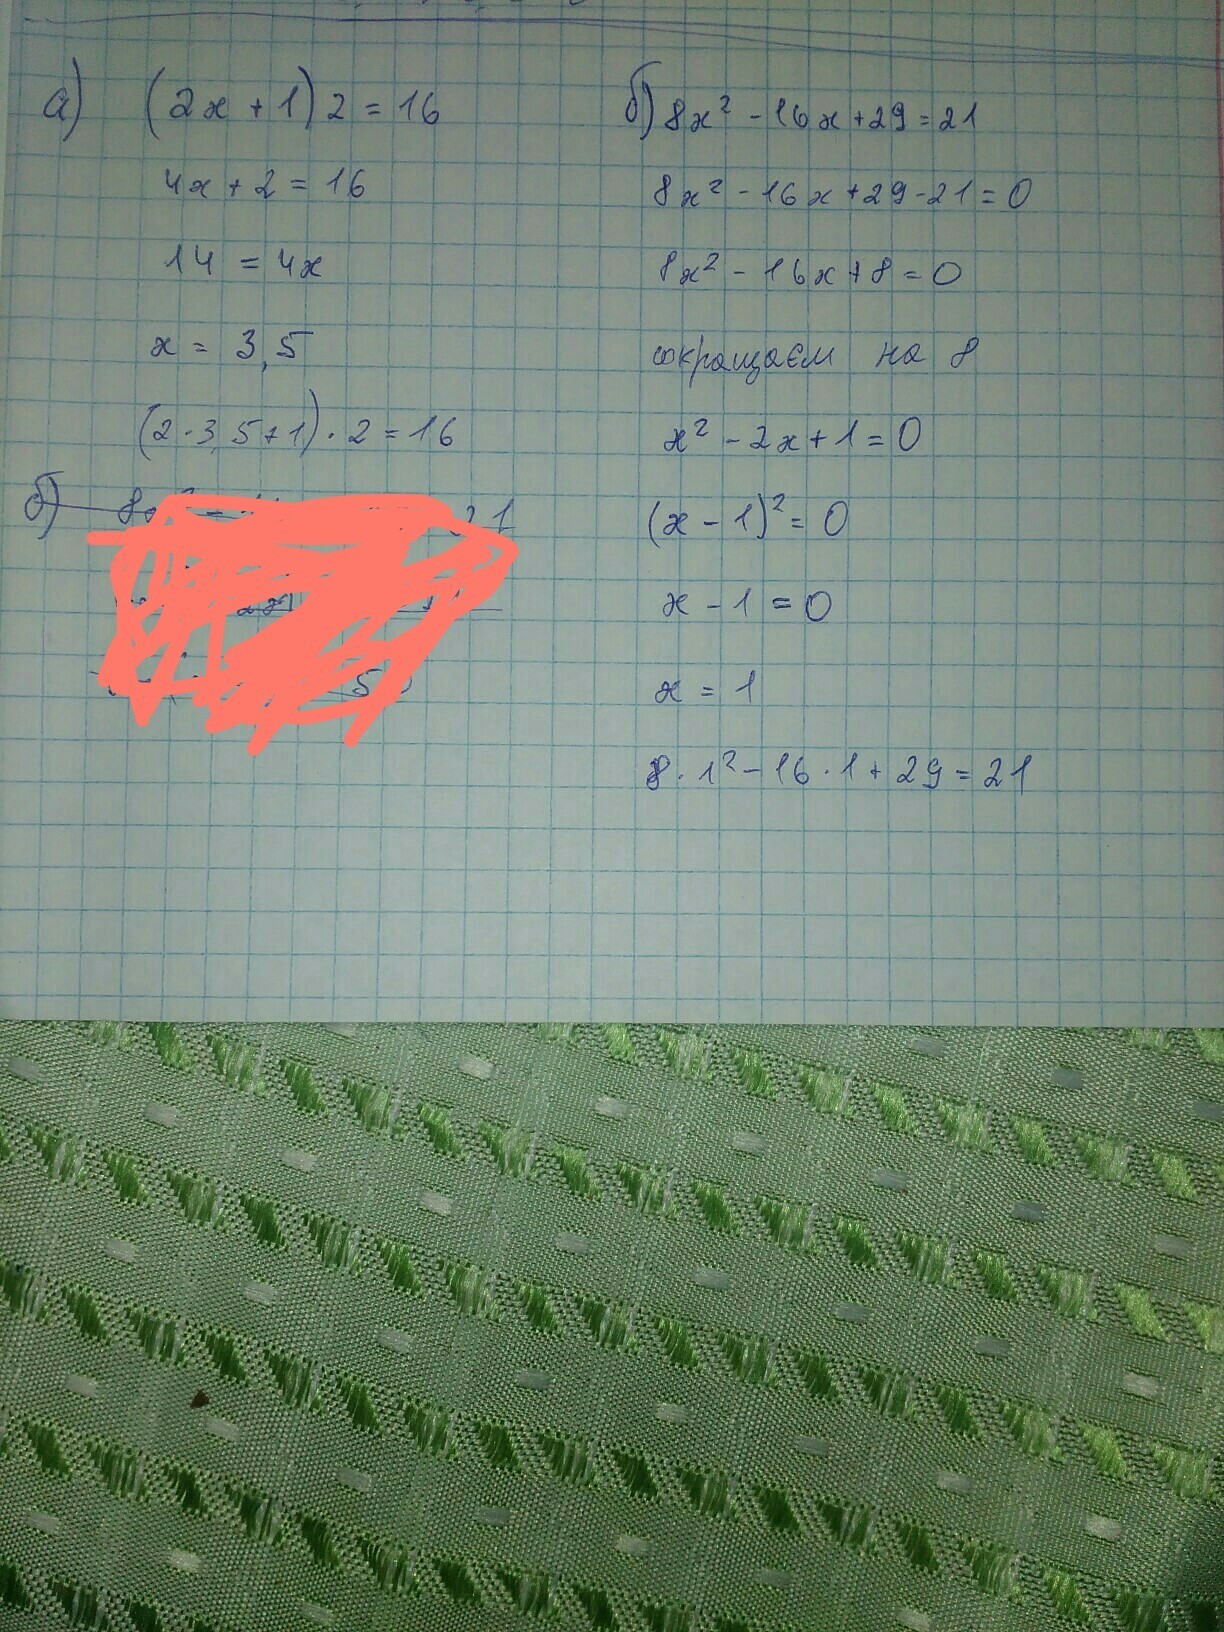 а) (2x + 1) 2 = 16
4x + 2 = 16
14 = 4x
x = 3,5
(2 · 3,5 + 1) · 2 = 16
б)
б) 8x² - 16x + 29 = 21
8x² - 16x + 29 - 21 = 0
8x² - 16x + 8 = 0
сокращаєм на 8
x² - 2x + 1 = 0
(x - 1)² = 0
x - 1 = 0
x = 1
8 · 1² - 16 · 1 + 29 = 21